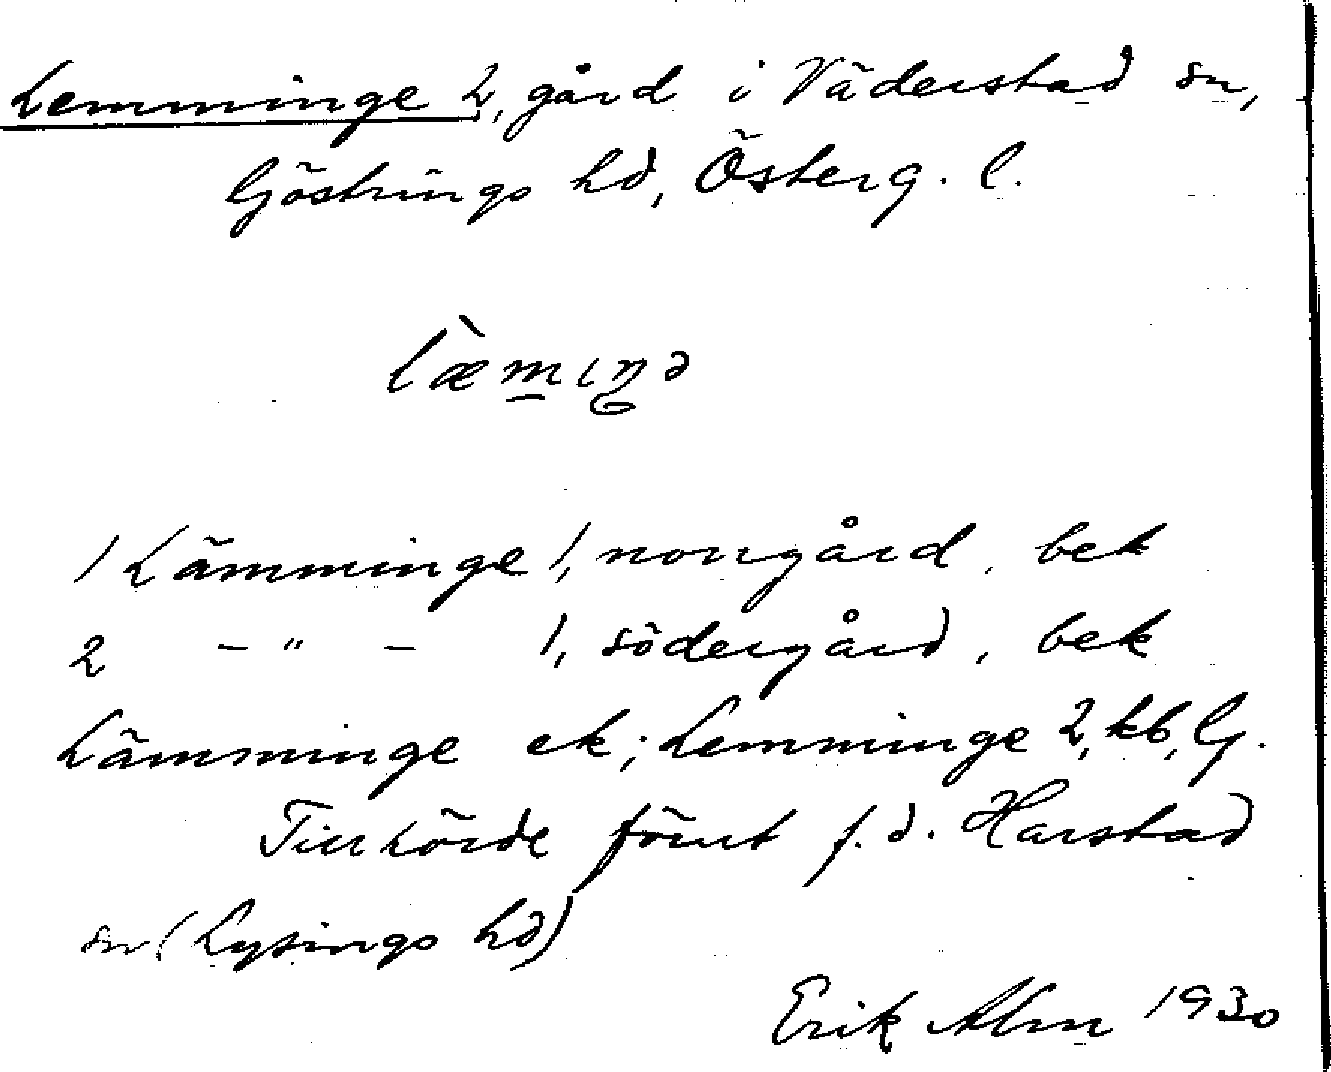 Lemminge 2, gård i Väderstad sn,
Göstrings hd, Österg. l.
læ̀mıŋə
1 Lämminge 1, norrgård, bek
2 - " - 1, södergård, bek
Lämminge ek; Lemminge 2, kb, G.
Tillhörde förut f. d. Harstad
sn (Lysings hd)
Erik Alm 1930